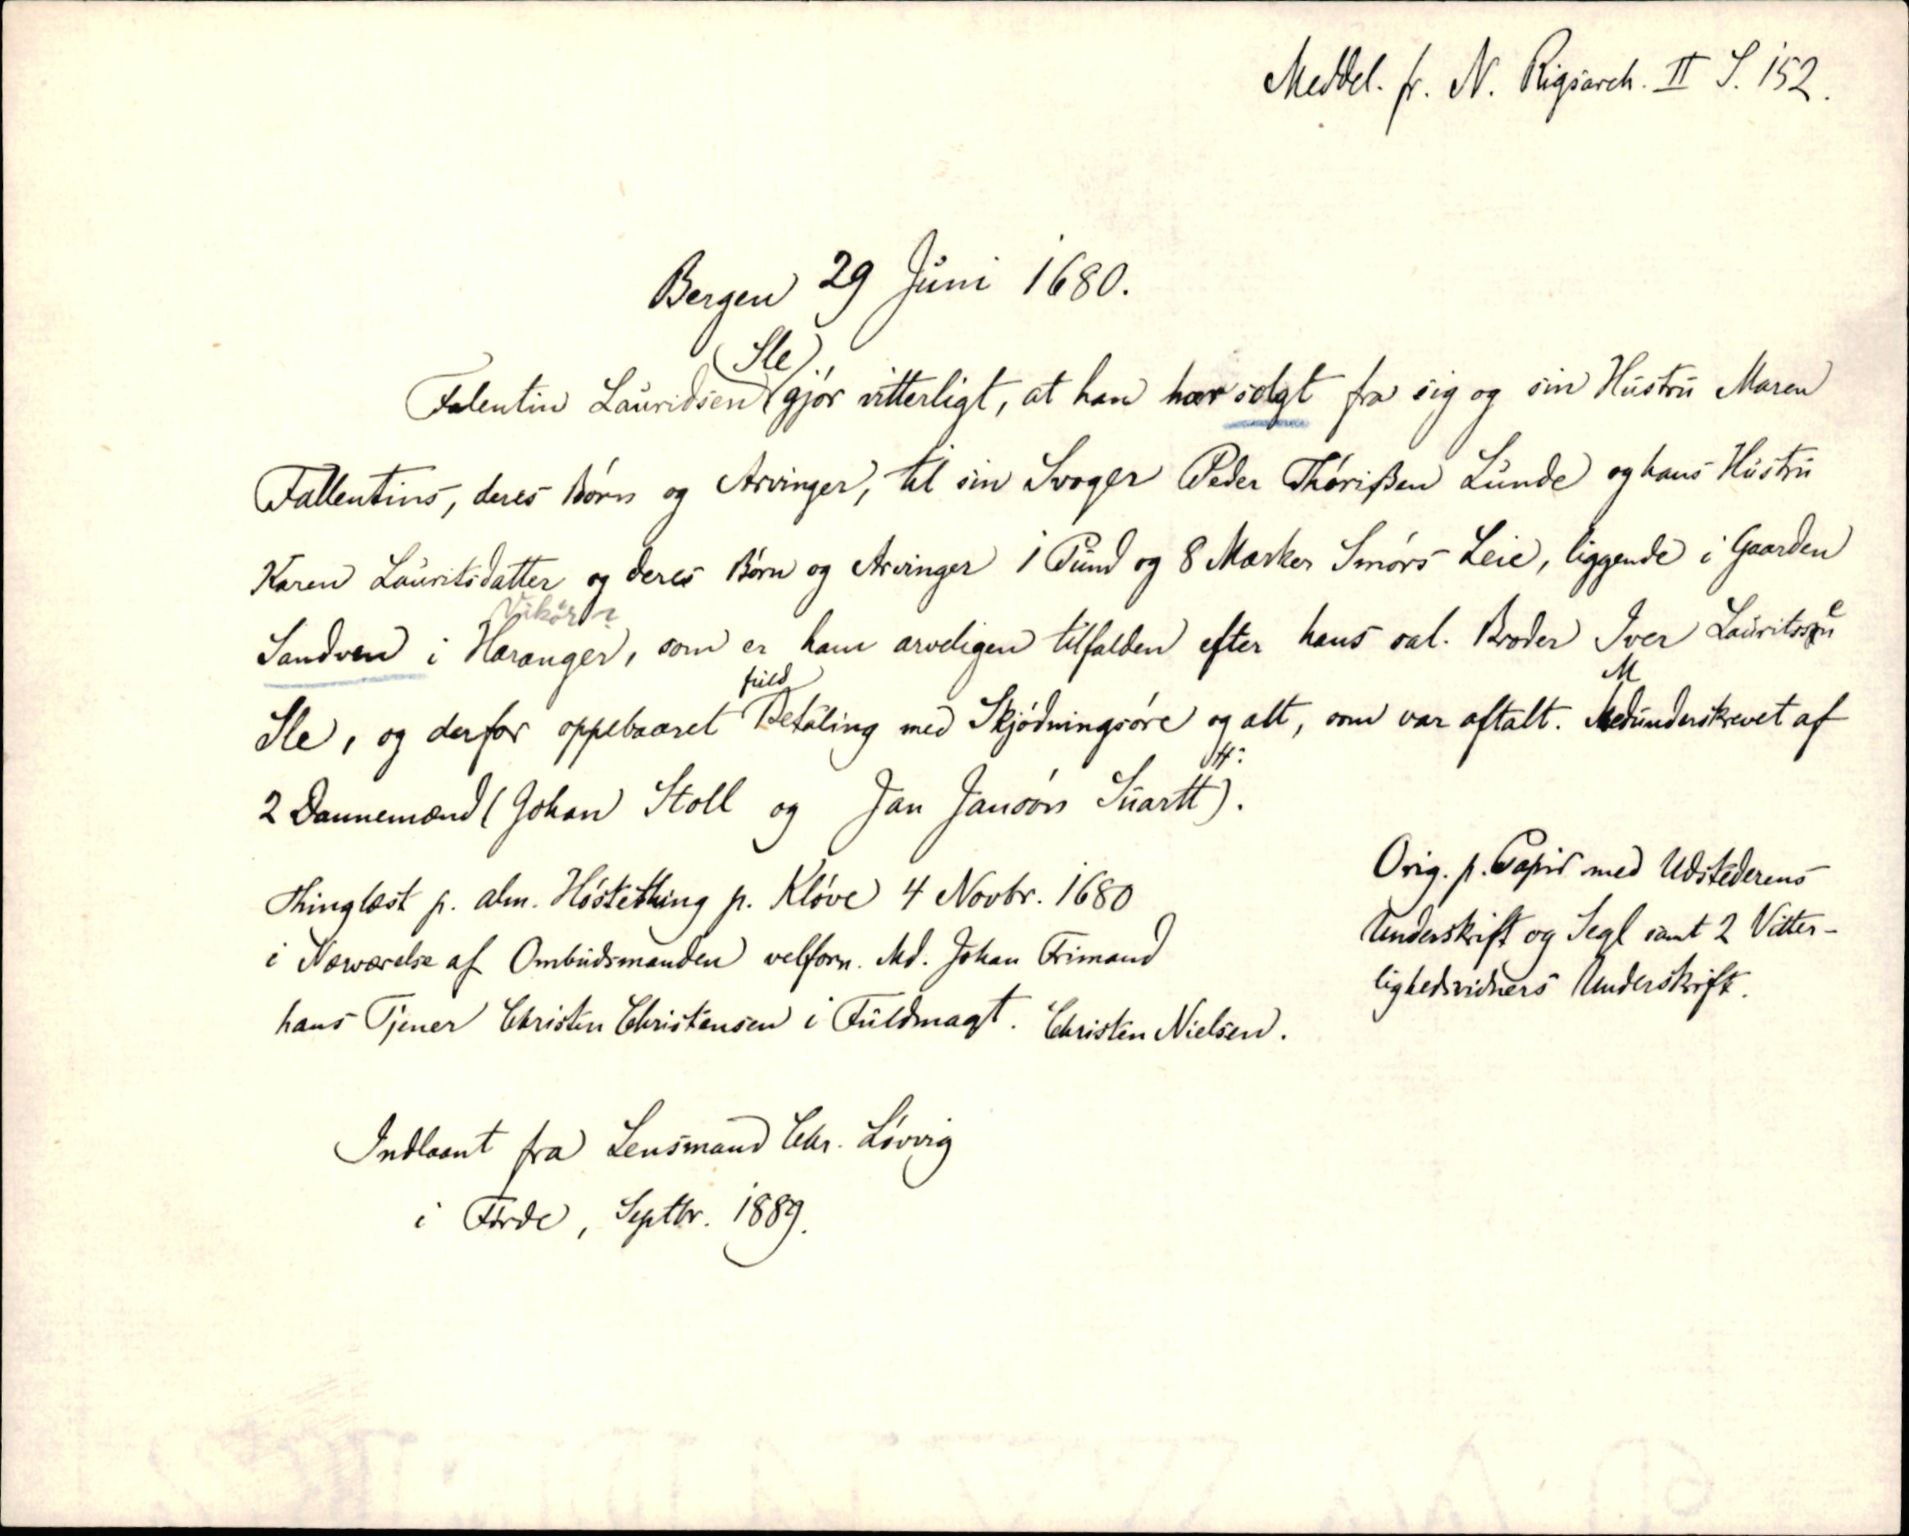 Meddel. fr. N. Rigsarch. II S. 152.
Bergen 29 Juni 1680.
Falentin Lauridsen Sle gjór vitterligt, at han har solgt fra sig og sin Hustru Maren
Fallentins, deres Börn og Arvinger, til sin Svoger Peder Thórißen Lunde og hans Hustru
Karen Lauritsdatter og deres Börn og Arvinger 1 Pund og 8 Marker Smórs Leie, liggende i Gaarden
Vikör?
Sandven i Haranger, som er ham arveligen tilfalden efter hans sal. Broder Iver Lauritssen
Sle, og derfor oppebaaret fuld Betaling med Skjódningsóre og alt, som var aftalt. Medunderskrevet af
2 Dannemænd (Johan Stoll og Jan Jansón Suartt).
Thinglæst p. alm. Hóstething p. Klóve 4 Novbr. 1680
i Nærværelse af Ombudsmanden velforn. Md. Johan Frimand
hans Tjener Christen Christensen i Fuldmagt. Christen Nielsen.
Orig. p. Papir med Udstederens
Underskrift og Segl samt 2 Vitter-
lighedsvidners Underskrift.
Indlaant fra Lensmand Chr. Lóvvig
i Förde, Septbr. 1889.